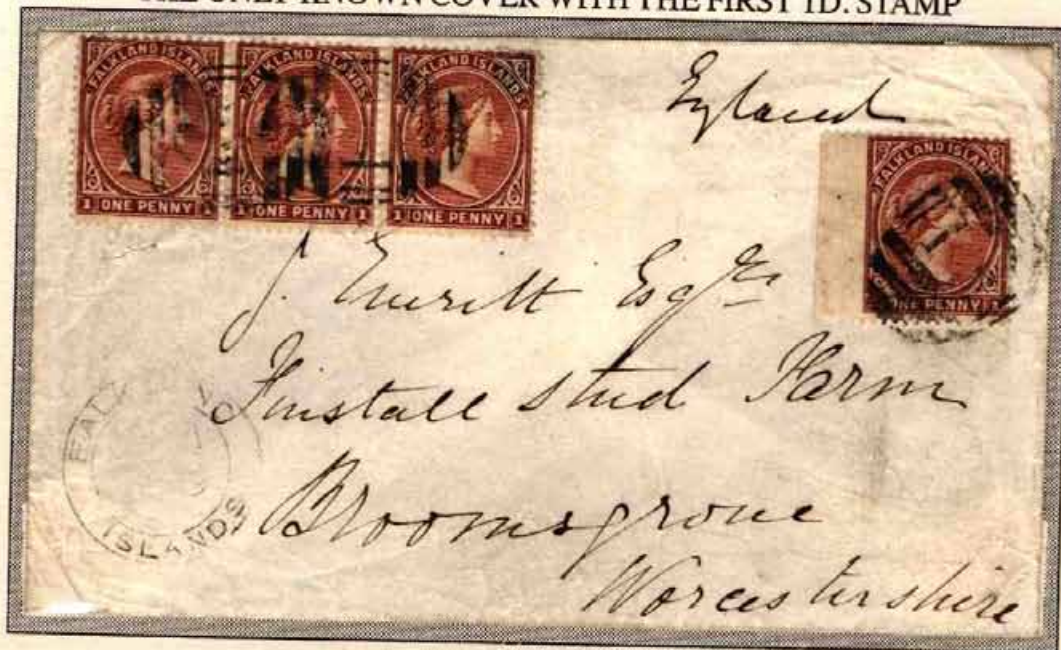 THE ONLY KNOWN COVER WITH THE FIRST 1D. STAMP
FALKLAND ISLANDS
1 ONE PENNY 1
FALKLAND ISLANDS
1 ONE PENNY 1
FALKLAND ISLANDS
1 ONE PENNY 1
England
FALKLAND ISLANDS
ONE PENNY 1
J. Everitt Esqre
Finstall Stud Farm
Bromsgrove
Worcestershire
FALK
ISLANDS